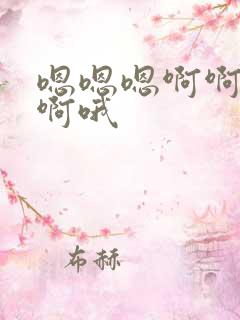 嗯嗯嗯啊啊
啊哦
布赫